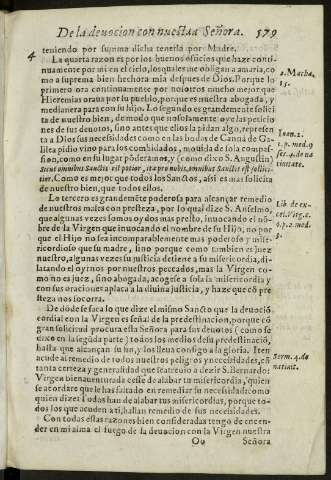 De la deuocion con nuestra Señora. 579
teniendo por summa dicha tenerla por Madre.
4 La quarta razon es por los buenos oficios que haze conti-
nuamente por mi en el cielo, los quales me obligan a amarla, co-
mo a suprema bien hechora mia despues de Dios. Porque lo
primero ora continuamente por nosotros mucho mejor que
Hieremias oraua por su pueblo, porque es nuestra abogada, y
medianera para con su hijo. Lo segundo es grandemente solici-
ta de nuestro bien, de modo que no solamente oye las peticio-
nes de sus deuotos, sino antes que ellos la pidan algo, represen-
ta a Dios sus necessidades como en las bodas de Canà de Ga-
lilea pidio vino para los combidados, mouida de sola compas-
sion, como en su lugar põderamos, y (como dixo S. Augustin)
Sicut omnibus Sanctis est potior, ita pro nobis, omnibus Sanctis est sollici-
tior. Como es mejor que todos los Santos, assi es mas solicita
de nuestro bien, que todos ellos.
Lo tercero es grandemẽte poderosa para alcançar remedio
de nuestros males con presteza, por lo qual dize S. Anselmo,
que algunas vezes somos oydos mas presto, inuocando el nõ-
bre de la Virgen que inuocando el nombre de su Hijo, no por
que el Hijo no sea incomparablemente mas poderoso y mise-
ricordioso que su madre, sino porque como tambien es juez
nuestro, algunas vezes su justicia detiene a su misericordia, di-
latando el oyrnos por nuestros peccados, mas la Virgen co-
mo no es juez, sino abogada, acogese a sola la misericordia y
con sus oraciones aplaca a la diuina justicia, y haze que cõ pre
steza nos socorra.
De dõde se saca lo que dize el mismo Sancto que la deuociõ
cordial con la Virgen es señal de la predestinacion, porque cõ
gran solicitud procura esta Señora para sus deuotos (como se
dixo en la segũda parte) todos los medios de su predestinaciõ,
hasta que alcançan su fin, y los lleua consigo a la gloria. Iten
acude al remedio de todos nuestros peligros y necessidades, cõ
tanta certeza y generalidad que se atreuio a dezir S. Bernardo:
Virgen bienauenturada cesse de alabar tu misericordia, quien
se acordare que le has faltado en remediar su necessidad: como
quien dize: Todos han de alabar tus misericordias, porque to-
dos los que acuden a ti, hallan remedio de sus necessidades.
Con todas estas razones bien consideradas tengo de encen-
der en mi alma el fuego de la deuocion con la Virgen nuestra
Oo Señora
2. Macha.
15.
Ioan. 2.
Serm. 4. de
natiuit.